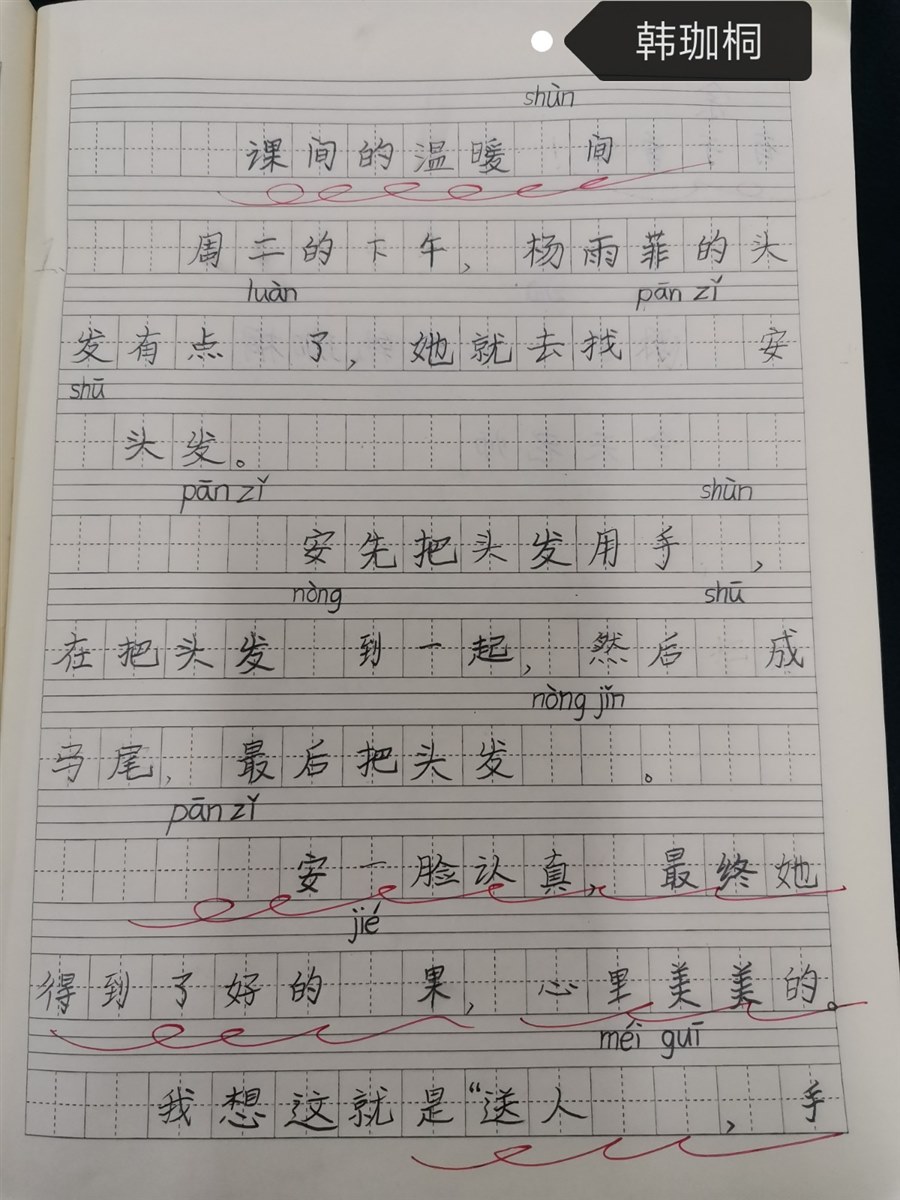 韩珈桐
shùn
课间的温暖 间
1、
周二的下午，杨雨菲的头
luàn pān zǐ
发有点 了，她就去找 安
shū
头发。
pān zǐ shùn
安先把头发用手 ，
nòng shū
在把头发 到一起，然后 成
nòng jǐn
马尾，最后把头发 。
pān zǐ
安一脸认真，最终她
jié
得到了好的 果，心里美美的。
méi guī
我想这就是“送人 ，手